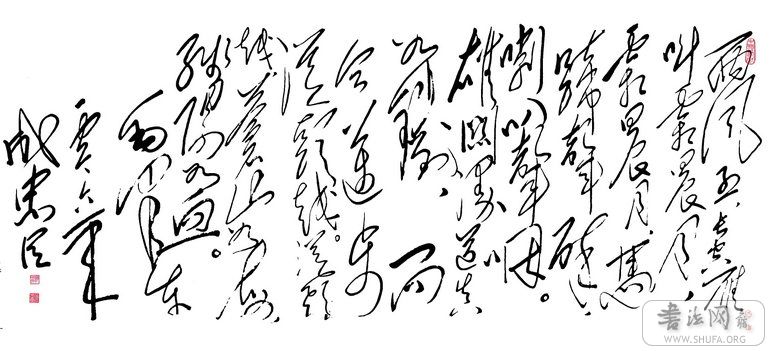 西风烈长空雁
叫霜晨月
霜晨月。马
蹄声碎
喇叭声咽。
雄关漫道真
如铁而
今迈步
从头越。从头
越苍山如海
残阳如血。
毛泽东
六年
成忠臣
書法网
WWW.SHUFA.ORG